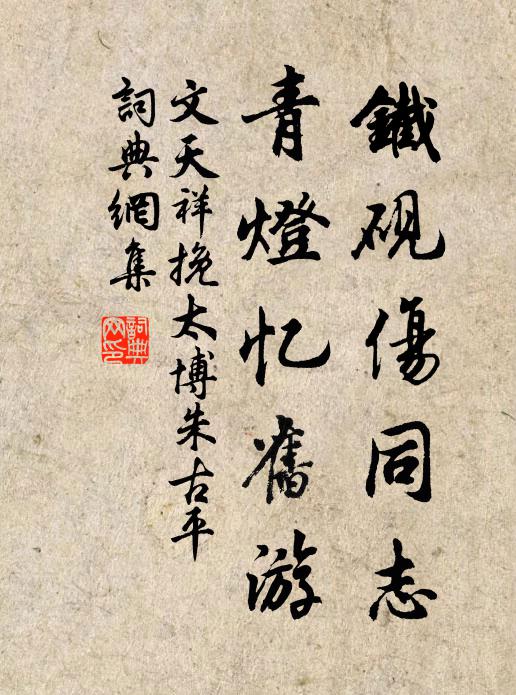 鐵硯傷同志
青燈忆舊游
文天祥挽太博朱古平
詞典網集
詞典网印